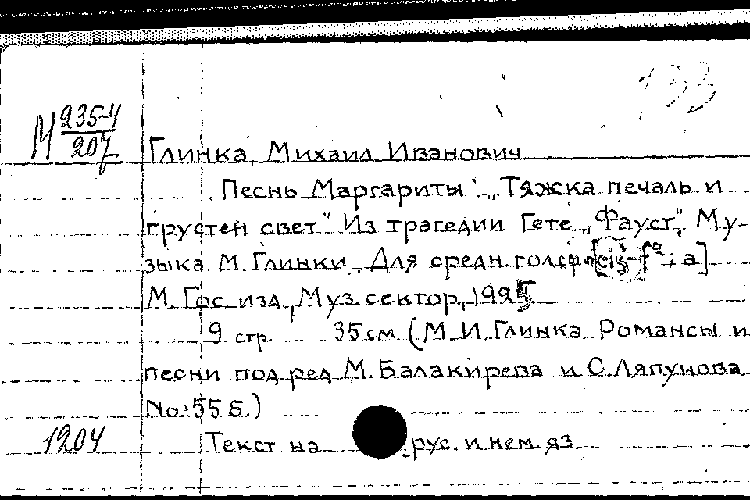 133
М 235-4
207
Глинка, Михаил Иванович
Песнь Маргариты: „Тяжка печаль и
грустен свет". Из трагедии Гете „Фауст". Му-
зыка М. Глинки. Для средн. голоса
М. Гос. изд., Муз. сектор, 1925
9 стр. 35 см. (М. И. Глинка. Романсы и
песни под ред. М. Балакирева и С. Ляпунова
No. 55 б.)
1204 Текст на рус. и нем. яз.